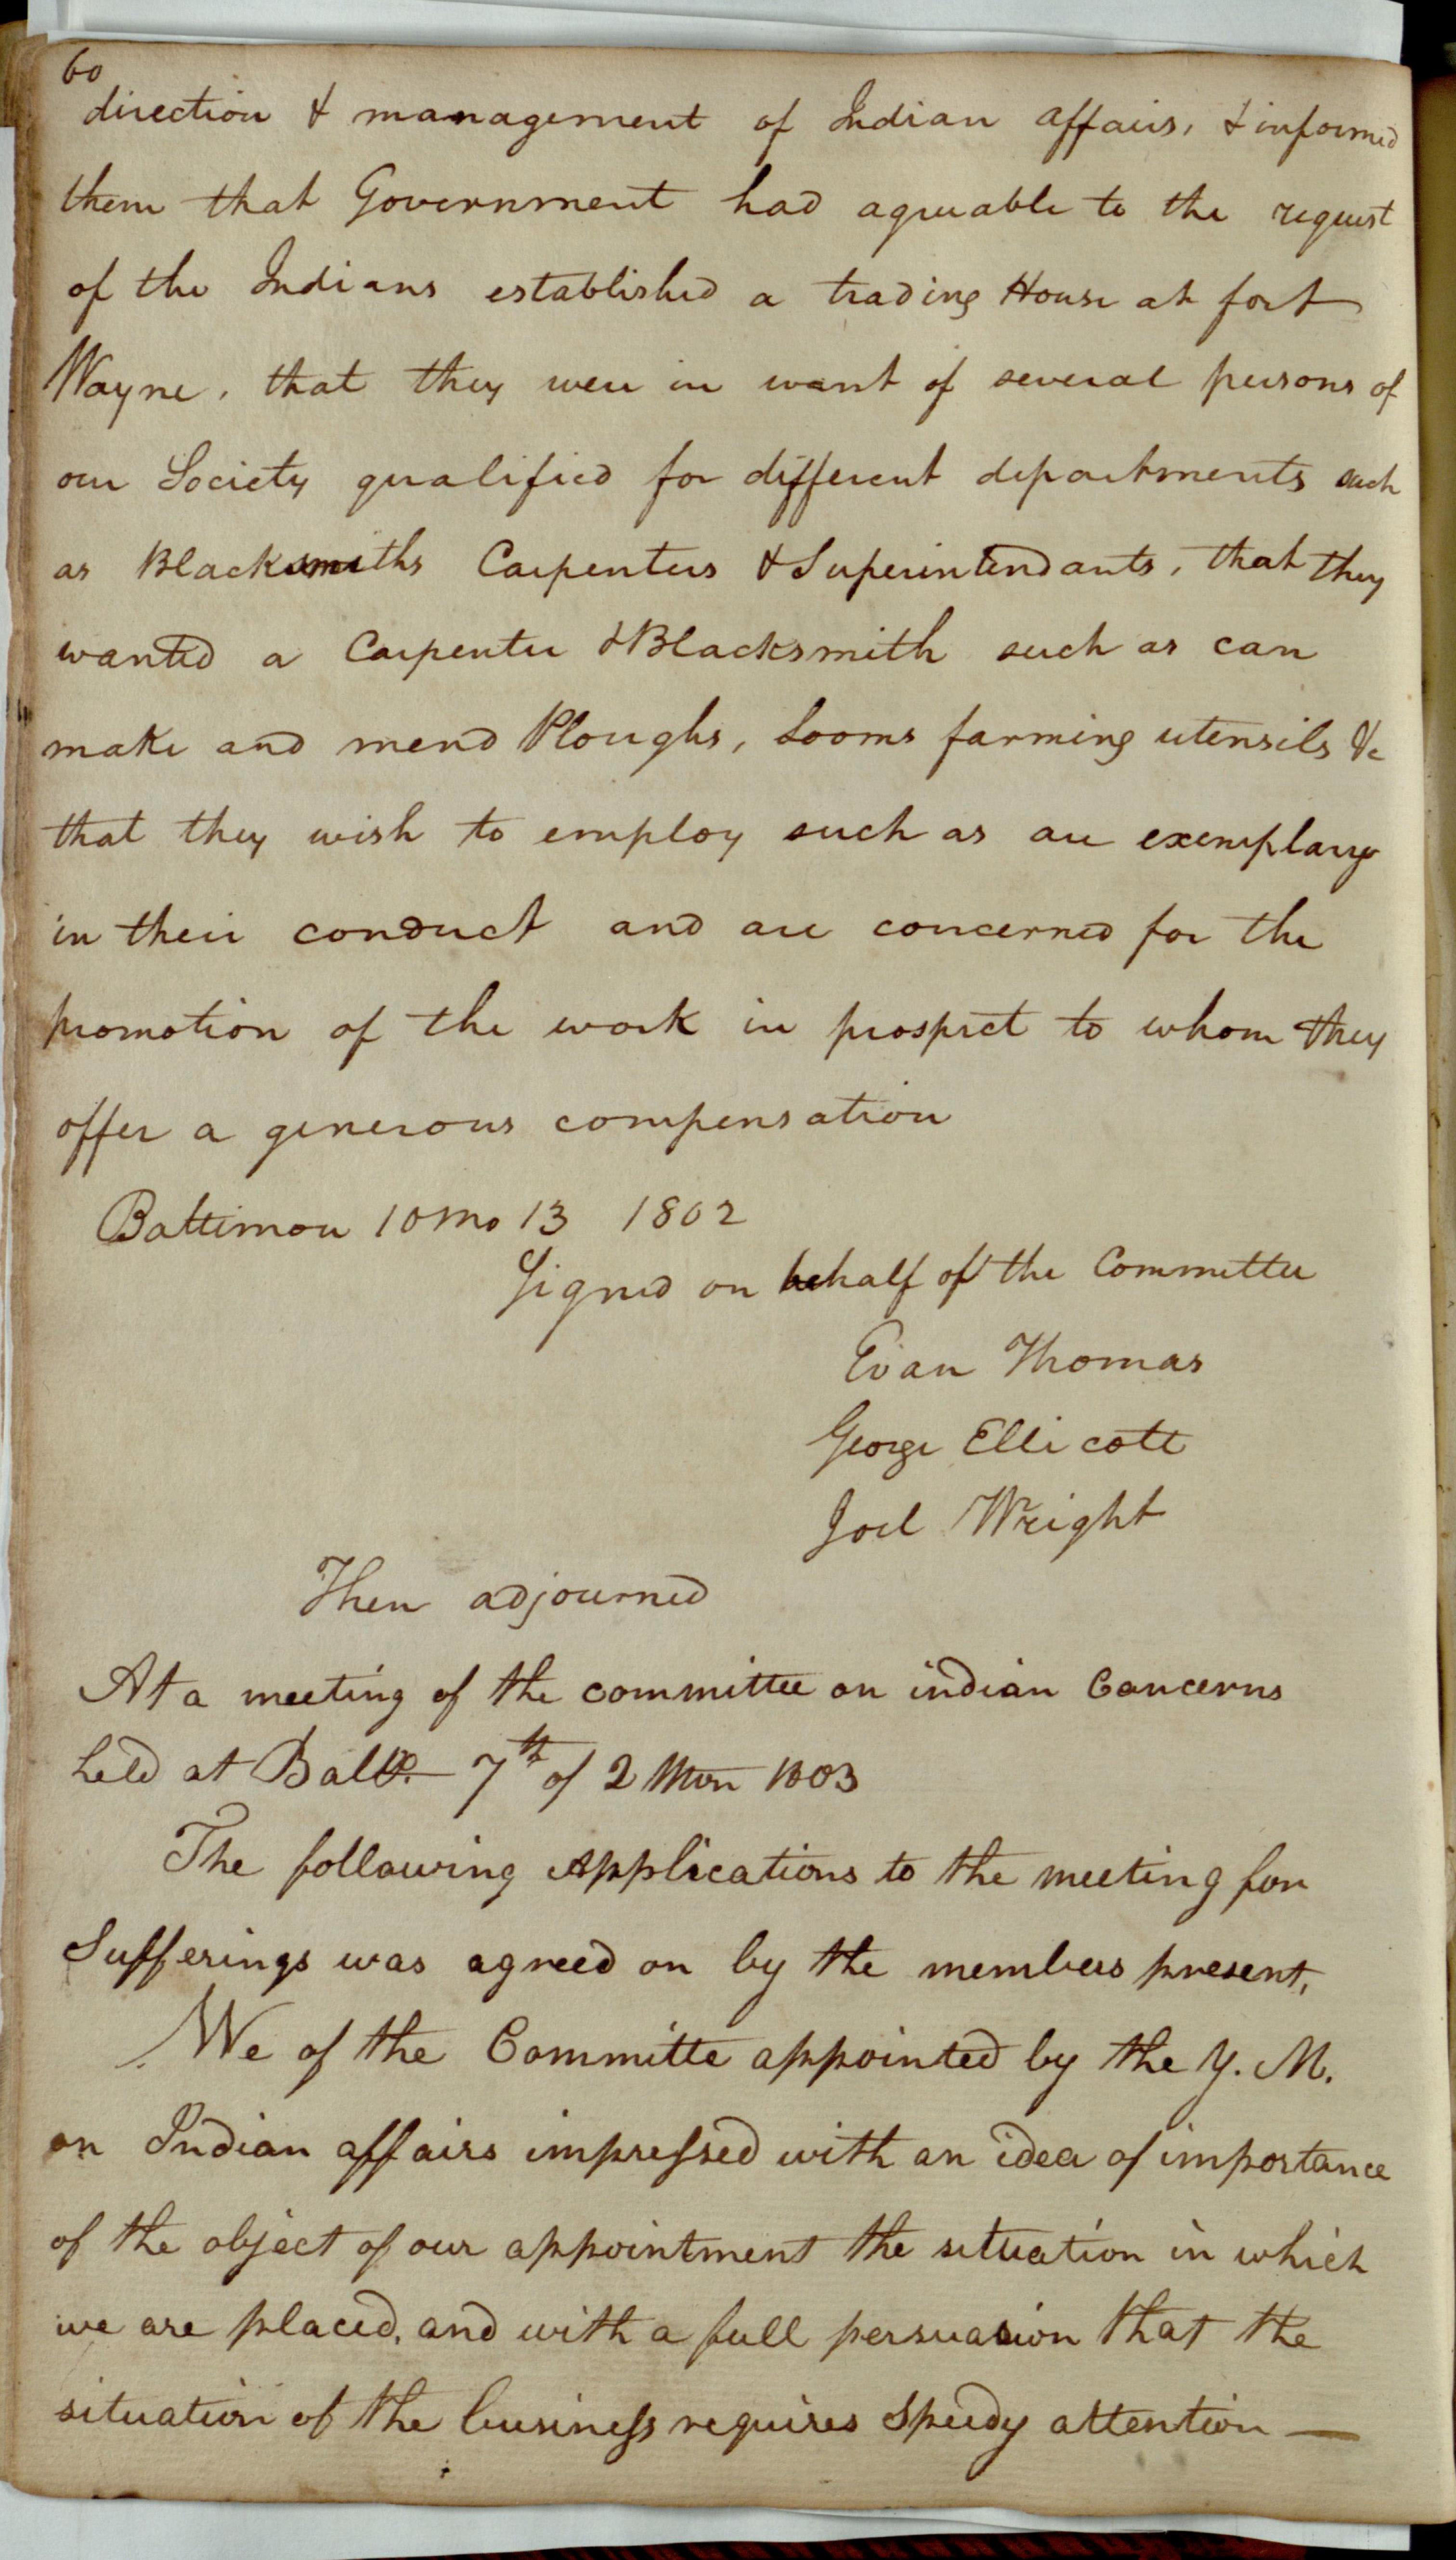 60
direction & management of Indian affairs, & informed
them that Government had agreeable to the request
of the Indians established a trading House at fort
Wayne, that they were in want of several persons of
our Society qualified for different departments such
as Blacksmiths Carpenters & Superintendants, that they
wanted a Carpenter & Blacksmith such as can
make and mend Ploughs, Looms farming utensils &c
that they wish to employ such as are exemplary
in their conduct and are concerned for the
promotion of the work in prospect to whom they
offer a generous compensation
Baltimore 10 mo 13 1802
Signed on behalf of the Committee
Evan Thomas
George Ellicott
Joel Wright
Then adjourned
At a meeting of the committee on indian Concerns
held at Balto. 7th of 2 Mon 1803
The following Applications to the meeting for
Sufferings was agreed on by the members present,
We of the Committe appointed by the Y. M.
on Indian affairs impressed with an idea of importance
of the object of our appointment the situation in which
we are placed, and with a full persuasion that the
situation of the business requires Speedy attention —